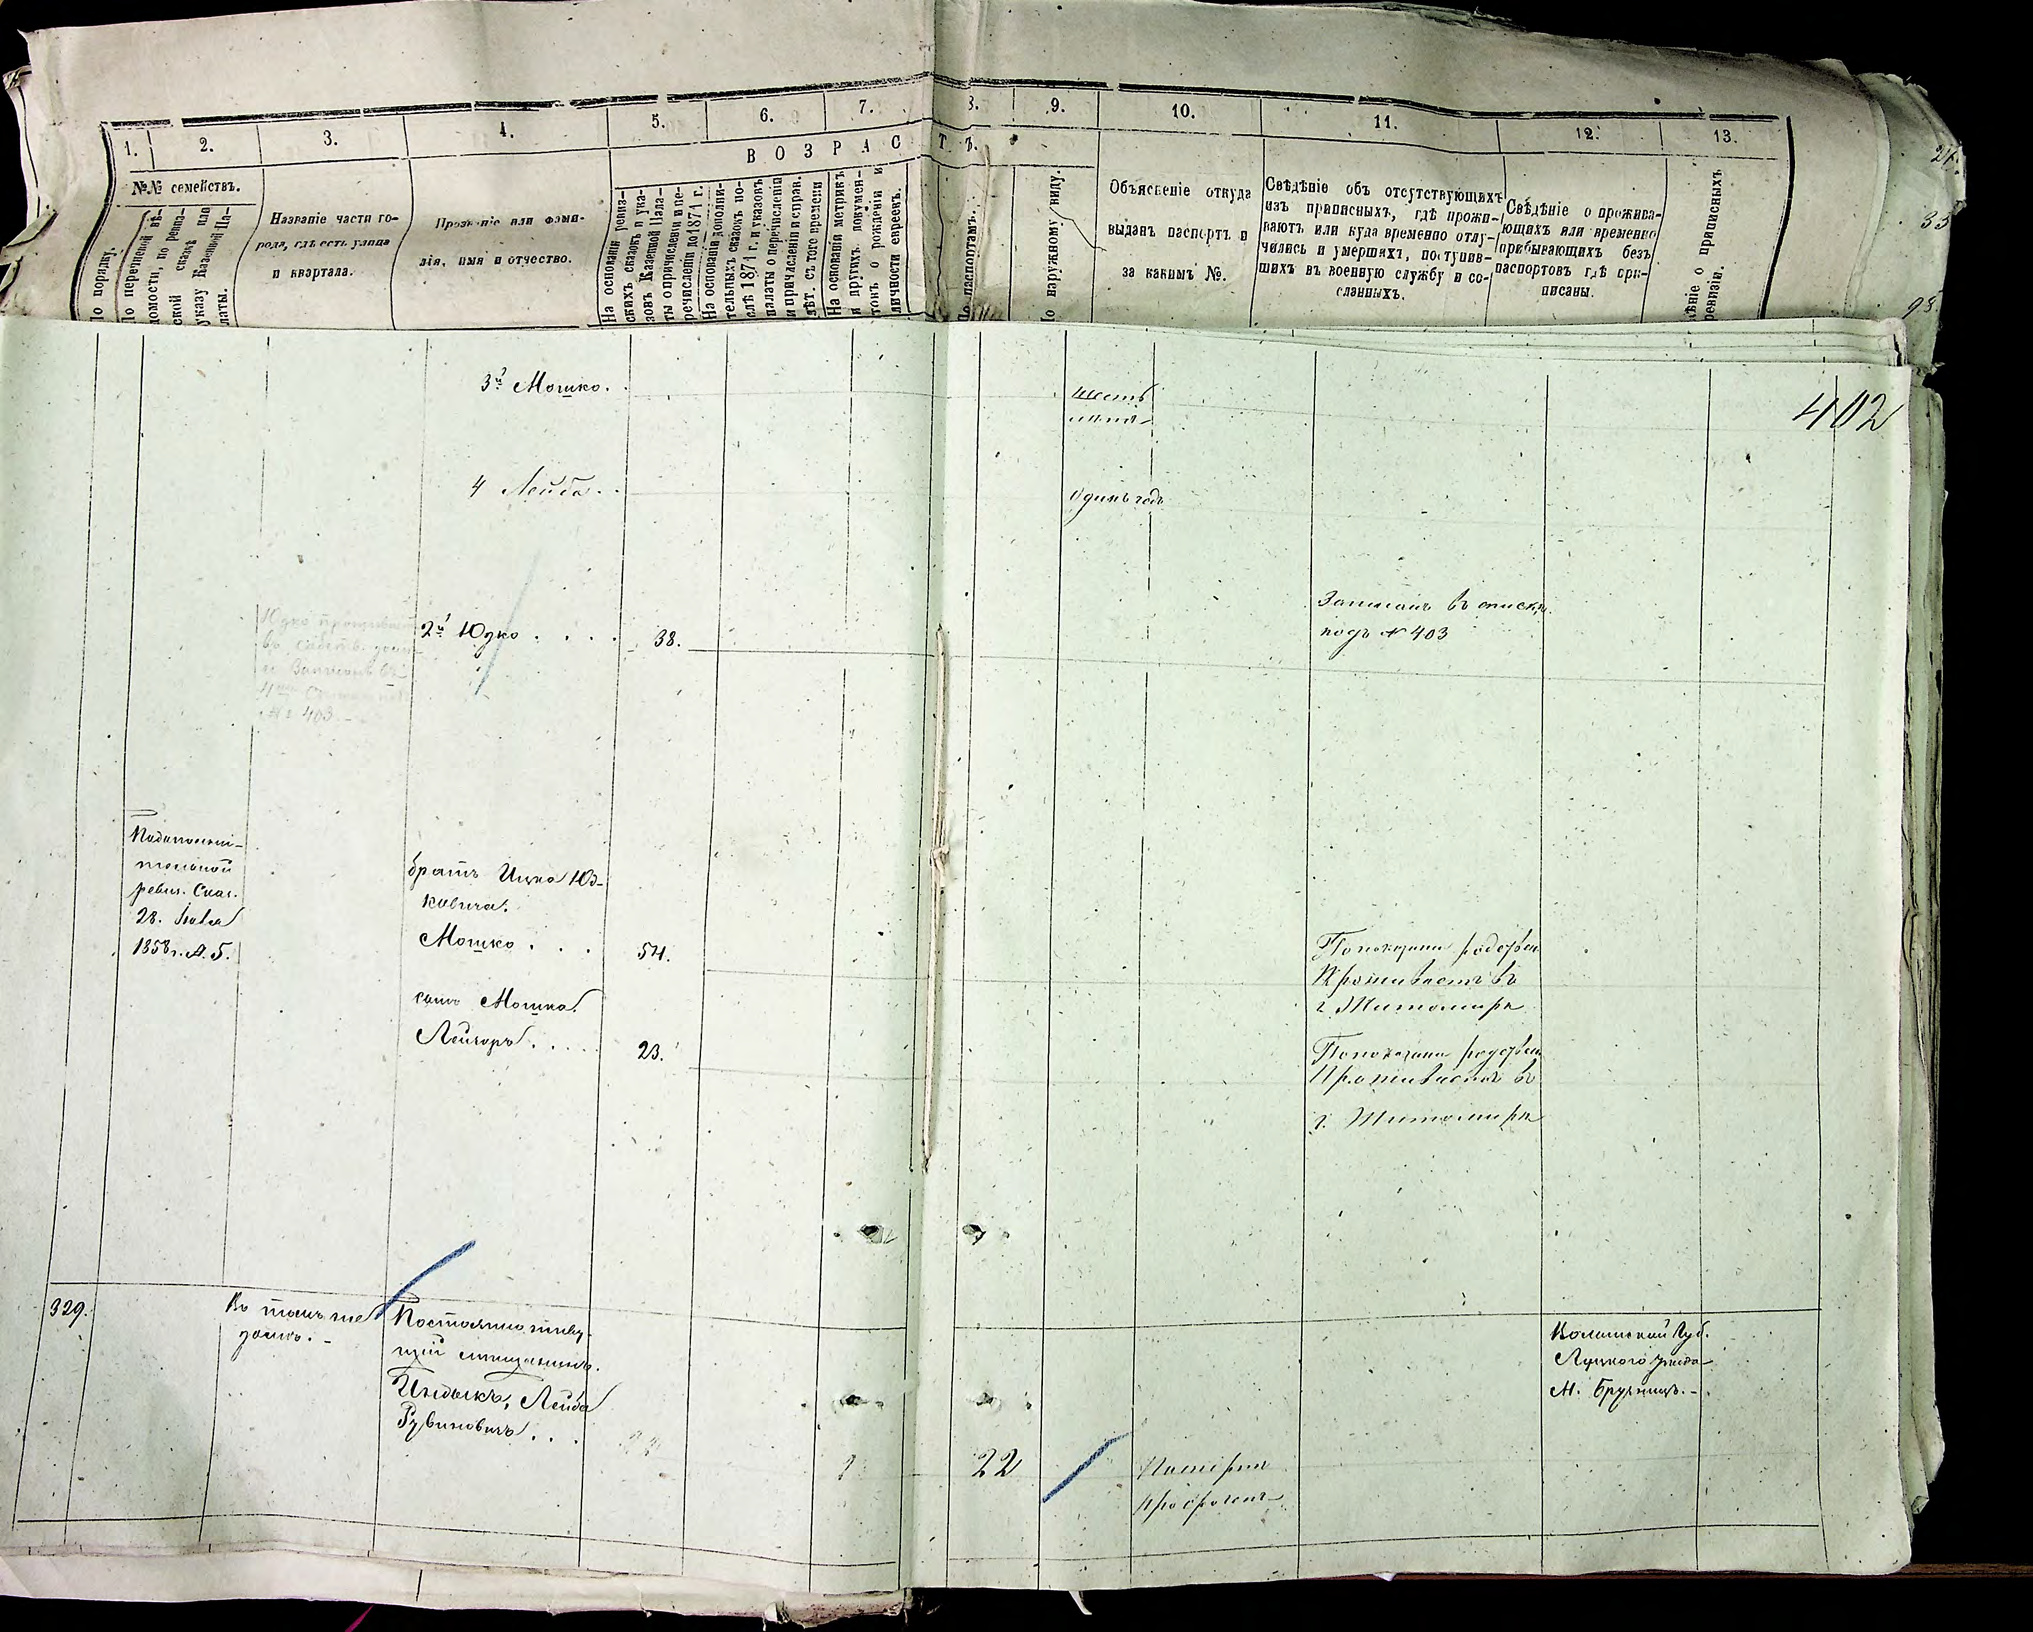 1. 2. 3. 4. 5. 6. 7. 8. 9. 10. 11. 12. 13.
ВОЗРАСТЪ.
№№ семействъ.
По порядку.
По перечневой вѣ-
домости, по ревиз-
ской сказкѣ или
указу Казенной Па-
латы.
Названіе части го-
рода, гдѣ есть улица
и квартала.
Прозваніе или фами-
лія, имя и отчество.
На основаніи ревиз-
скихъ сказокъ и ука-
зовъ Казенной Пала-
ты о причисленіи и пе-
речисленіи до 1871 г.
На основаніи дополни-
тельныхъ сказокъ по-
слѣ 1871 г. и указовъ
палаты о перечисленіи
и причисленіи и справ.
лѣт. съ того времени
На основаніи метрикъ
и другихъ докумен-
товъ о рожденіи и
личности евреевъ.
По паспортамъ.
По наружному виду.
Объясненіе откуда
выданъ паспортъ и
за какимъ №.
Свѣдѣніе объ отсутствующихъ
изъ приписныхъ, гдѣ прожи-
ваютъ или куда временно отлу-
чились и умершихъ, поступив-
шихъ въ военную службу и со-
сланныхъ.
Свѣдѣніе о прожива-
ющихъ или временно
прибывающихъ безъ
паспортовъ гдѣ при-
писаны.
ѣніе о приписныхъ
402
3й Мошко.
шесть
лѣтъ
4 Лейба
одинъ годъ
2й Юдко 38.
Записанъ въ списки
подъ № 403
Юдко проживает
въ
и Записанъ въ
№ 403.
ревиз. Сказ.
28.
1858 г. №. 5.
братъ Ицка Юд-
ковича
Мошко 54.
Проживаетъ въ
г. Житомирѣ
сынъ Мошка
Лейзоръ 23.
Проживаетъ въ
г. Житомирѣ
329.
Въ томъ же
домѣ.
Постоянно живу-
щій мѣщанинъ.
Индыкъ, Лейба
Рувиновичъ
22
Паспортъ
просроченъ
Волынской Губ.
Луцкого уѣзда
М.